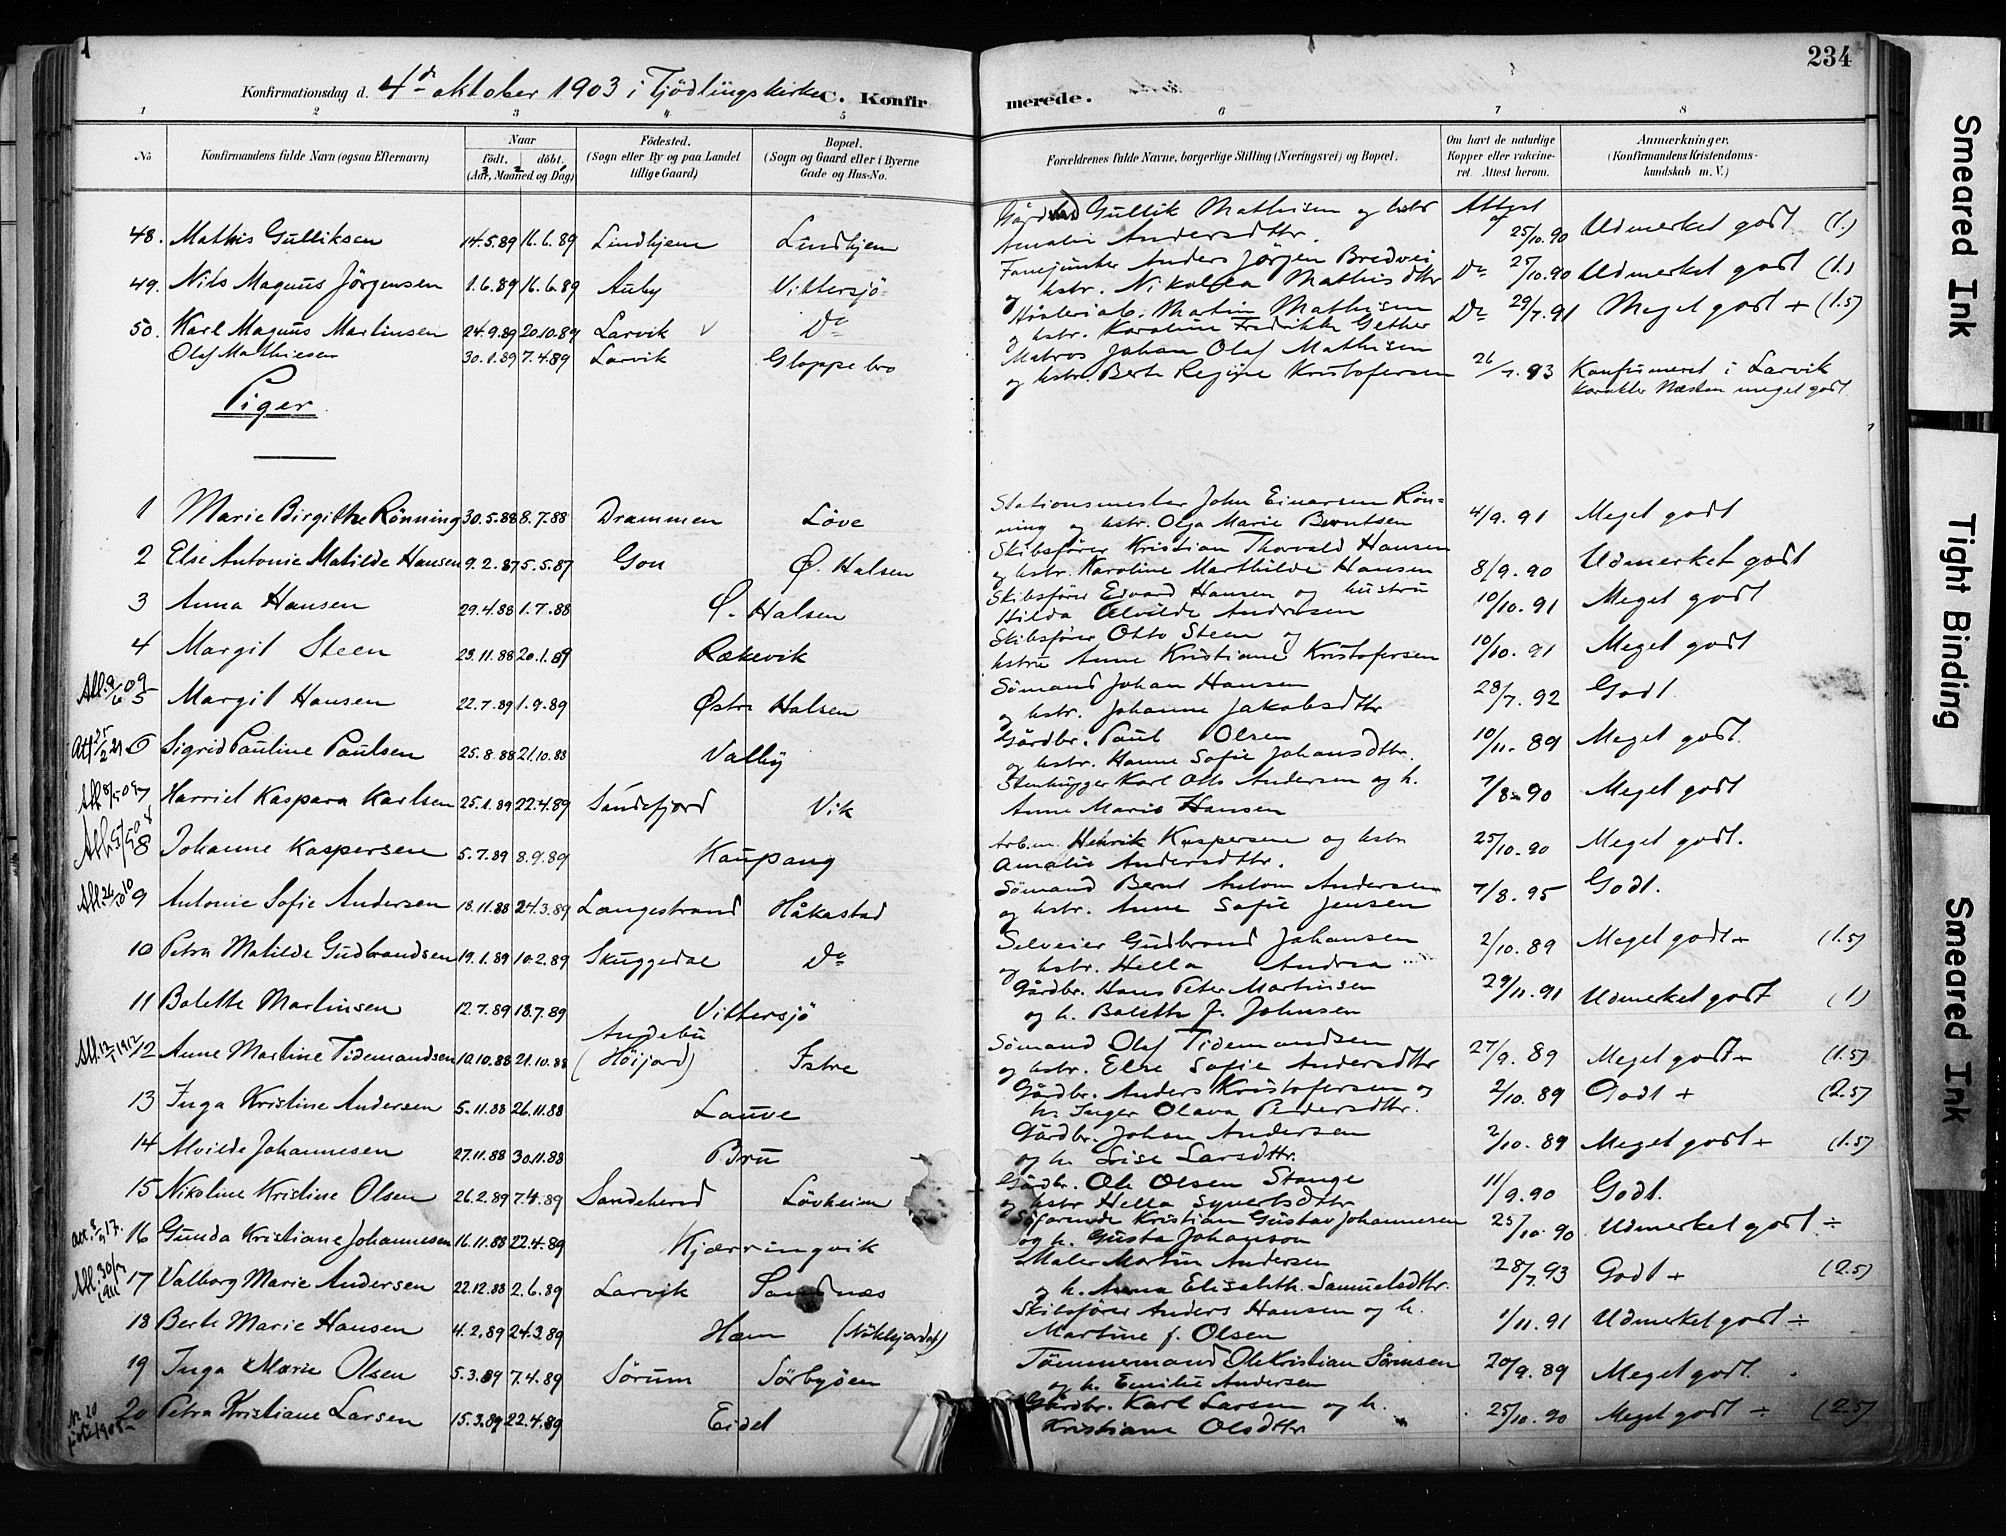 234
Konfirmationsdag d. 4de oktober 1903 i Tjödlingskirke C. Konfirmerede.
1 2 3 4 5 6 7 8
No
Konfirmandens fulde Navn (ogsaa Efternavn)
Naar
födt. döbt.
(Aar, Maaned og Dag)
Födested.
(Sogn eller By og paa Landet tillige Gaard)
Bopæl.
(Sogn og Gaard eller i Byerne Gade og Hus-No.
Forældrenes fulde Navne, borgerlige Stilling (Næringsvei) og Bopæl.
Om havt de naturlige Kopper eller vakcineret. Attest herom.
Anmærkninger.
(Konfirmandens Kristendomskundskab m. V.)
48. Mathis Gulliksen 14.5.89 16.6.89 Lindhjem Lindhjem Gullik Mathisen og hstr Amalie Andersdttr. Attest af 25/10.90 Udmerket godt (1.)
49. Nils Magnus Jörgensen 1.6.89 16.6.89 Auby Vittersjö Anders Jörgen Bredvei og hstr. Nikolea Mathisdttr Do 25/10.90 Udmerket godt (1.)
50. Karl Magnus Martinsen 24.9.89 20.10.89 Larvik Do Martin Mathisen og hstr. Karoline Fredrikke Gether Do 29/7.91 Meget godt + (1.5)
Olaf Mathiesen 30.1.89 7.4.89 Larvik Gloppe bro Matros Johan Olaf Mathisen og hstr. Berte Regine Kristofersen 26/7.93 Konfirmeret i Larvik
karakter Næsten meget godt
Piger
1 Marie Birgithe Rönning 30.5.88 8.7.88 Drammen Löve Stationsmester John Einarsen Rönning og hstr. Olga Marie Berntsen 4/9.91 Meget godt
2 Else Antonie Matilde Hansen 9.2.87 5.5.87 Gon Ø. Halsen Skibsförer Kristian Thorvald Hansen og hstr. Karoline Marthilde Hansen 8/9.90 Udmerket godt
3 Anna Hansen 29.4.88 1.7.88 Ø. Halsen Skibsförer Edvard Hansen og hustru Hilda Alvilde Andersen 10/10.91 Meget godt
4 Margit Steen 23.11.88 20.1.89 Rækevik Skibsförer Otto Steen og hstru Anne Kristiane Kristofersen 10/10.91 Meget godt
Att. 9/6 09 5 Margit Hansen 22.7.89 1.9.89 Østre Halsen Sömand Johan Hansen og hstr. Johanne Jakobsdttr 28/7.92 Godt.
Att 25/2 21 6 Sigrid Pauline Paulsen 25.8.88 21.10.88 Valby Gårdbr. Paul Olsen og hstr. Hanne Sofie Johansdttr. 10/11.89 Meget godt.
7 Harriet Kaspara Karlsen 25.1.89 22.4.89 Sandefjord Vik Stenhugger Karl Otto Andersen og h. Anne Marie Hansen 7/8.90 Meget godt
8 Johanne Kaspersen 5.7.89 8.9.89 Kaupang Arb.m. Henrik Kaspersen og hstr Amalie Andersdttr. 25/10.90 Meget godt.
9 Antonie Sofie Andersen 18.11.88 24.3.89 Langestrand Håkastad Sömand Bernt Anton Andersen og hstr. Anne Sofie Jensen 7/8.95 Godt.
10 Petra Matilde Gudbrandsen 19.1.89 10.2.89 Skuggedal Do Selveier Gudbrand Johansen og hstr. Hella Andrea 2/10.89 Meget godt + (1.5)
11 Bolette Martinsen 12.7.89 18.7.89 Vittersjö Gårdbr. Hans Peter Martinsen og h. Bolette f. Johnsen 29/11.91 Udmerket godt (1)
Att. 12/1 1912 12 Anne Martine Tidemandsen 10.10.88 21.10.88 Andebu (Höijord) Istre Sömand Olaf Tidemandsen og hstr. Else Sofie Andersdttr 27/9.89 Meget godt + (1.5)
13 Inga Kristine Andersen 5.11.88 26.11.88 Lauve Gårdbr. Anders Kristofersen og h. Inger Olava Pedersdttr. 2/10.89 Godt + (2.5)
14 Alvilde Johannesen 27.11.88 30.11.88 Bru Gårdbr. Johan Andersen og h. Lise Larsdttr. 2/10.89 Meget godt + (1.5)
15 Nikoline Kristine Olsen 26.2.89 7.4.89 Sandeherred Lövheim Gårdbr. Ole Olsen Stange og hstr Hella Syvertsdttr 11/9.90 Godt.
16 Gunda Kristiane Johannesen 16.11.88 22.4.89 Kjærringvik Söfarende Kristian Gustav Johannesen og h. Gusta Johanson 25/10.90 Udmerket godt ÷
Att. 30/1 1911 17 Valborg Marie Andersen 22.12.88 2.6.89 Larvik Sandnæs Maler Martin Andersen og h. Anna Elisabeth Samuelsdttr. 28/7.93 Godt + (2.5)
18 Berte Marie Hansen 4.2.89 24.3.89 Ham Skibsförer Anders Hansen og h. Martine f. Olsen 1/11.91 Udmerket godt ÷
19 Inga Marie Olsen 5.3.89 7.4.89 Sörum Sörbyöen Tömmermand Ole Kristian Sörensen og h. Emilie Andersen 20/9.89 Meget godt.
20 Petra Kristiane Larsen 15.3.89 22.4.89 Eidet Gårdbr. Karl Larsen og h. Kristiane Olsdttr 25/10.90 Meget godt ÷ (2.5)
Smeared Ink
Tight Binding
Smeared Ink